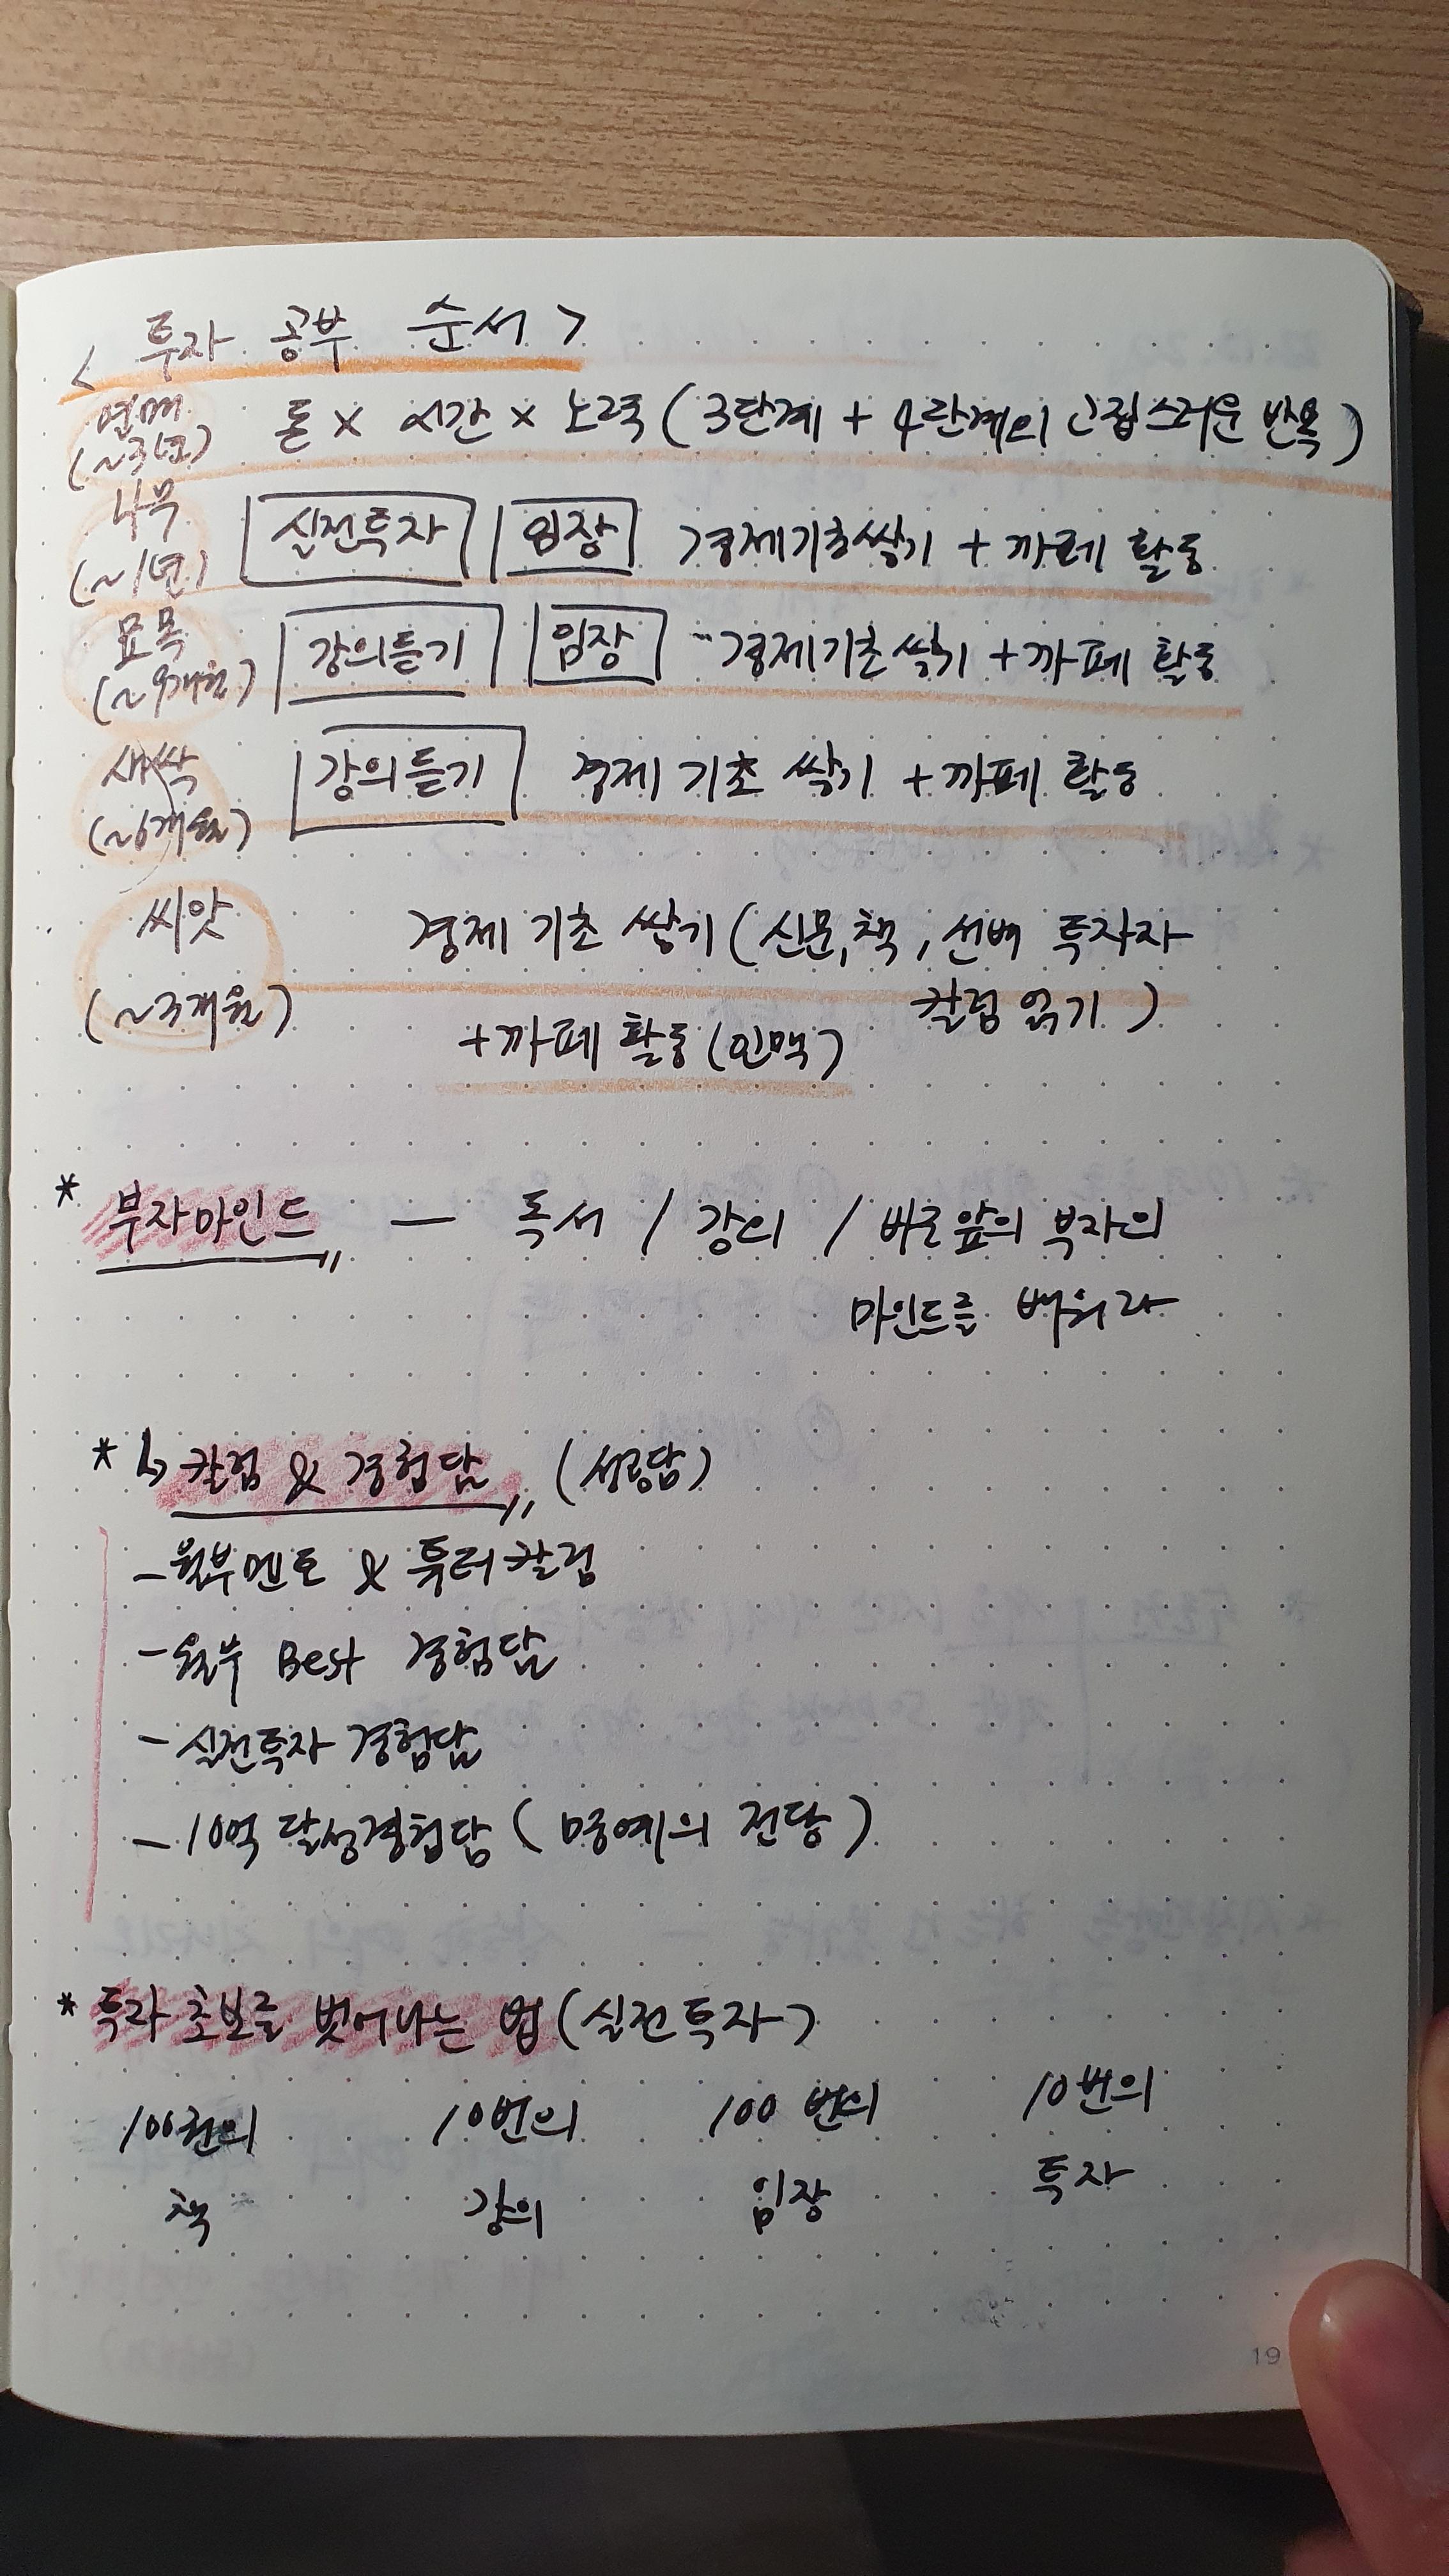 < 투자 공부 순서 >
열매 돈 × 시간 × 노력 (3단계 + 4단계의 고집스러운 반복)
(~3년)
나무 실전투자 임장 경제기초쌓기 + 까페 활동
(~1년)
묘목 강의듣기 임장 경제기초쌓기 + 까페 활동
(~9개월)
새싹 강의듣기 경제 기초 쌓기 + 까페 활동
(~6개월)
씨앗 경제 기초 쌓기 (신문, 책, 선배 투자자
(~3개월) 칼럼 읽기)
+ 까페 활동 (인맥)
* 부자마인드 — 독서 / 강의 / 바로앞의 부자의
마인드를 배워라
* ↳ 칼럼 & 경험담 (성공담)
- 월부멘토 & 튜터칼럼
- 월부 Best 경험담
- 실전투자 경험담
- 10억 달성경험담 (명예의 전당)
* 투자 초보를 벗어나는 법 (실전투자)
100권의 10번의 100번의 10번의
책 강의 임장 투자
19